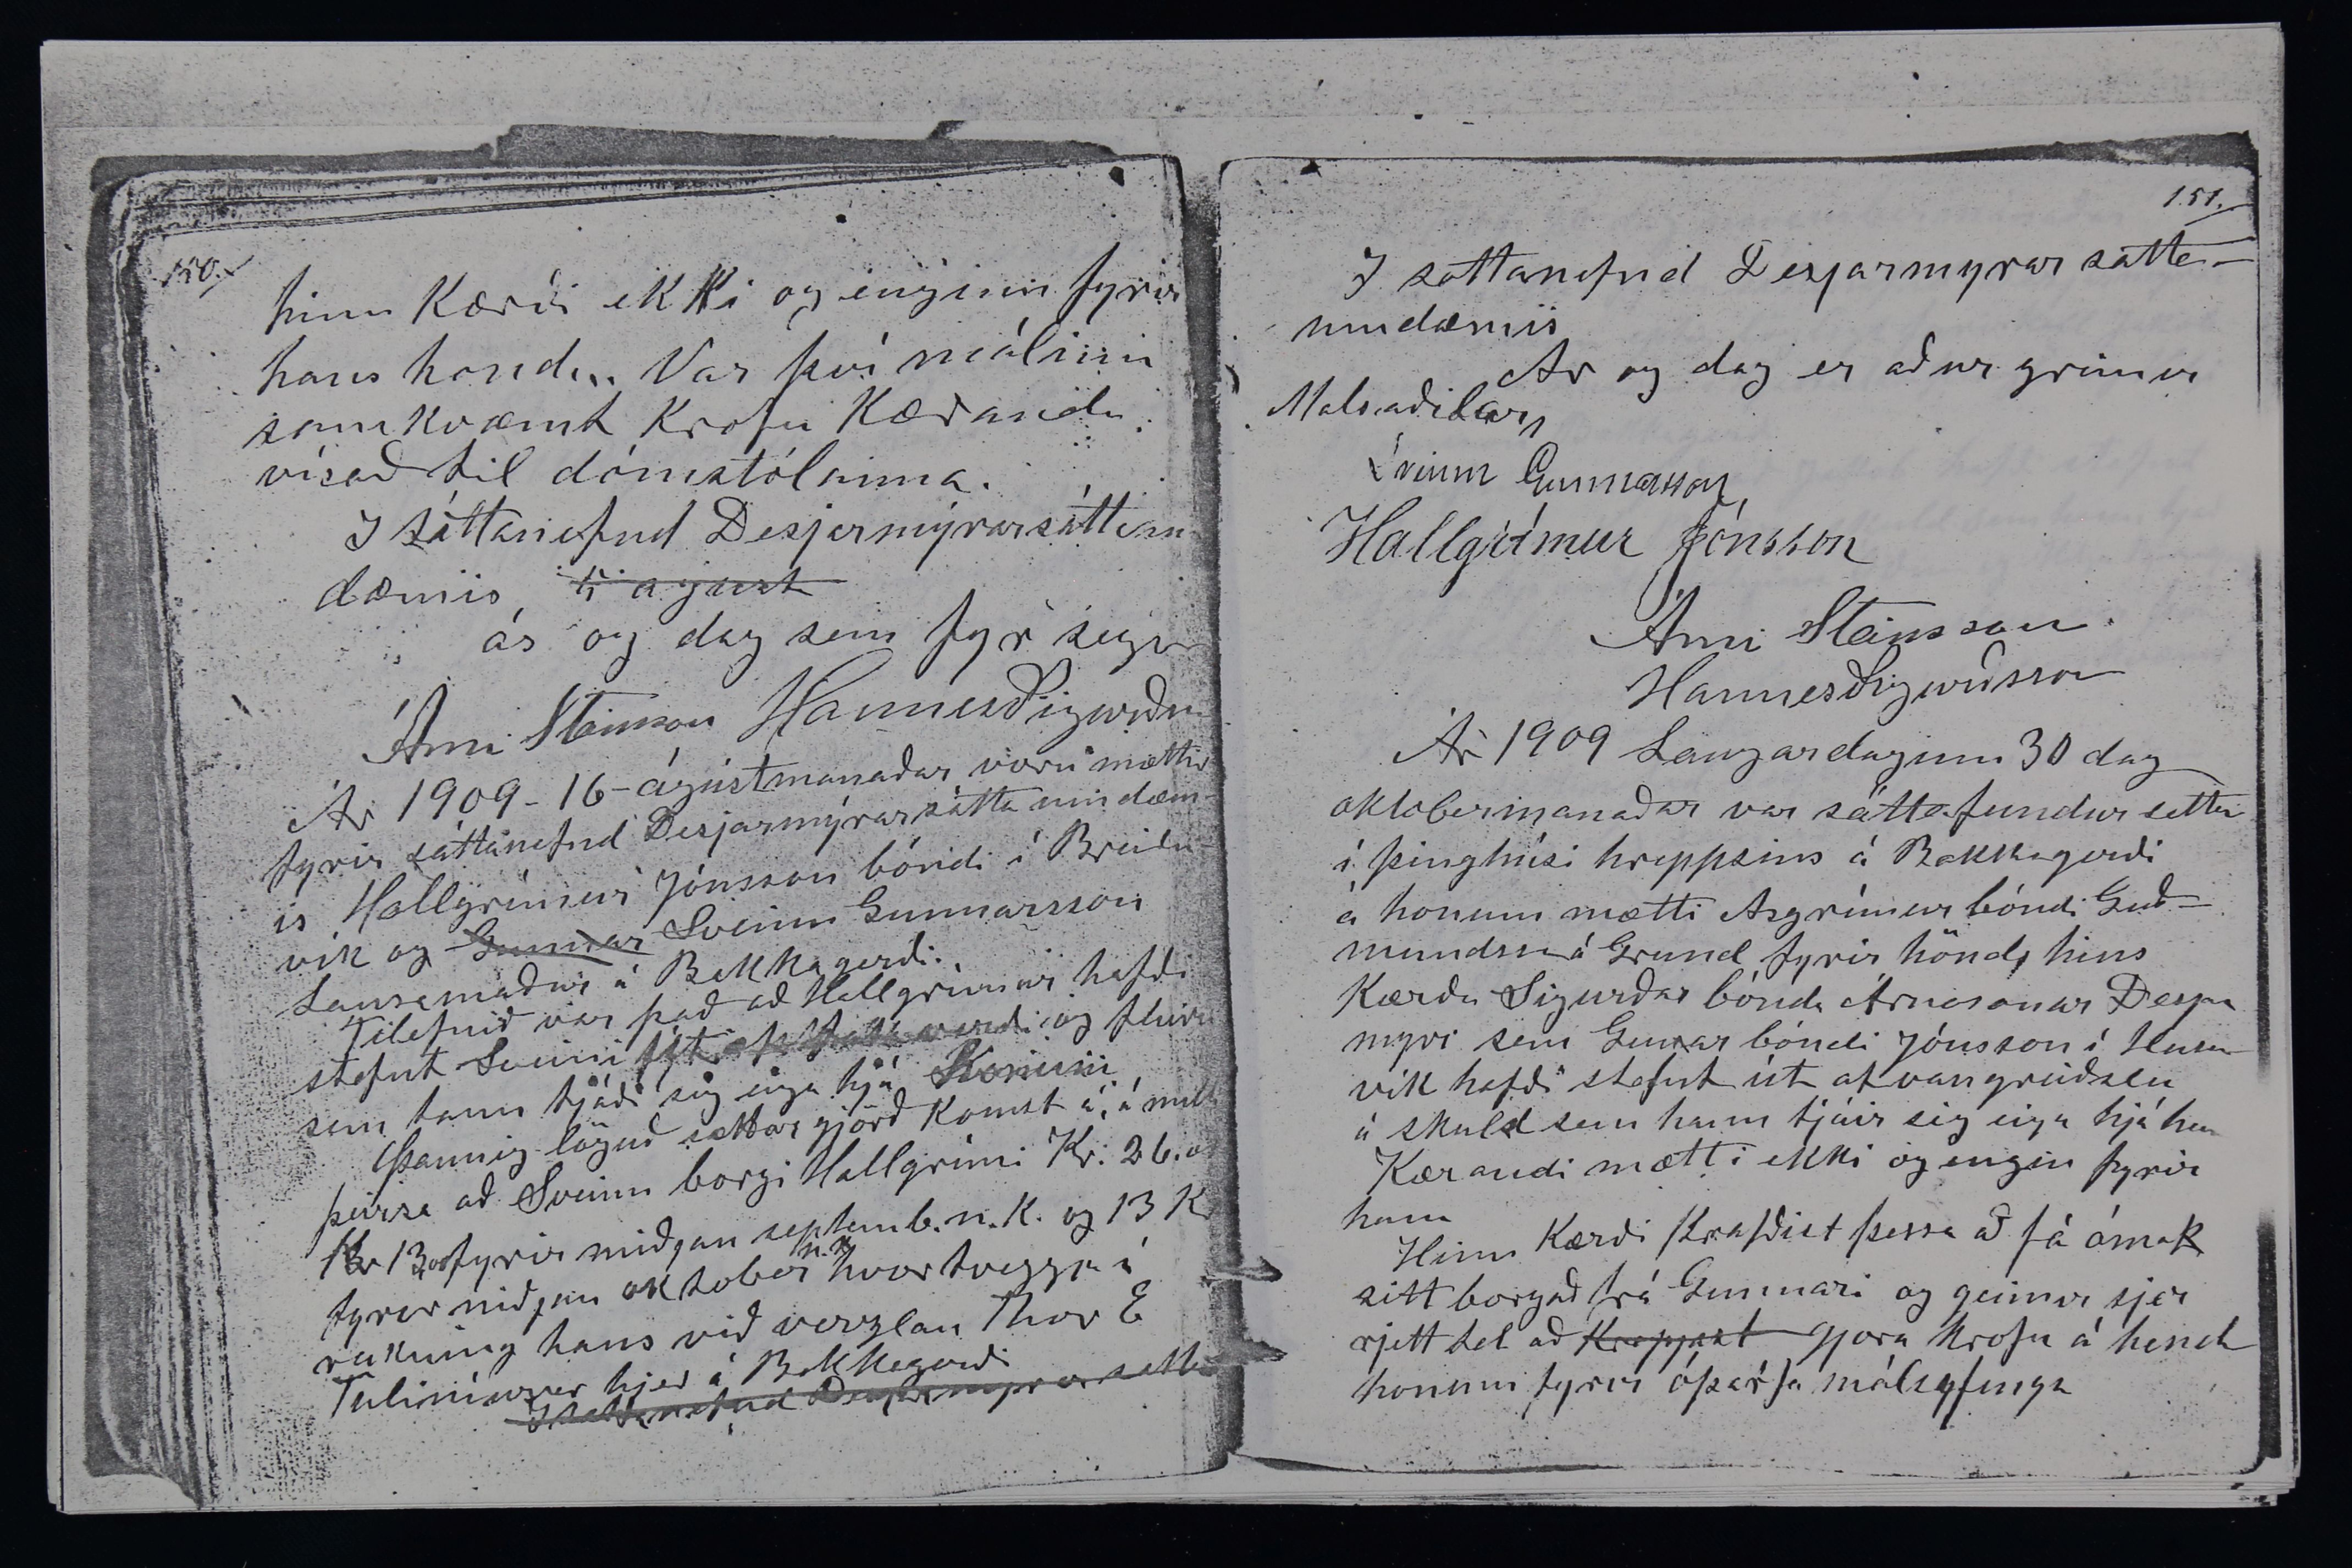 150.
hinn Kærði ekki og enginn fyrir
hans hönd. Var því málinu
samkvæmt Krofu Kæranda
vísað til dómstólanna.
I sáttanefnd Desjarmýrarsáttaum
dæmis, 5 agust
ár og dag sem fyr segir
Árni Steinsson Hannes Sigurðss
Ár 1909 - 16 - ágústmanaðar voru mættir
fyrir sáttanefnd Desjarmýrarsáttaumdæm-
is Hallgrímur Jónsson bóndi í Breiðu-
vík og Gunnar Sveinn Gunnarsson
Lausamaður á Bakkagerði.
Tilefnið var það að Hallgrímur hafði
stefnt Sveini út af verði og fleiru
sem hann tjáði sig eiga hjá Honum
Þannig löguð sættargjörð Komst á, á milli
þeirra að Sveinn borgi Hallgrími Kr. 26.00
Kr 13,00 fyrir miðjan septemb. n.k. og 13 Kr
fyrir miðjan oktober n.k. hvortveggja í
reikning hans við verzlan Thor E
Tuliniusar hjer á Bakkagerði
I sáttanefnd Desjarmyrar sátta
151.
I sáttanefnd Desjarmyrar sátta-
umdæmis
Ar og dag er aður greinir
Malsaðilar,
Sveinn Gunnarsson,
Hallgrímur Jónsson
Árni Steinsson.
Hannes Sigurðsson
Ár 1909 Laugardaginn 30 dag
oktobermanaðar var sáttafundur settur
í þinghúsi hreppsins á Bakkagerði
á honum mætti Asgrímur bóndi Guð-
mundss á Grund fyrir hönd hins
Kærða Sigurðar bónda Árnasonar Desja
myri sem Gunnar bóndi Jónsson í Husa-
vík hafði stefnt út af vangreiðslu
á skuld sem hann tjáir sig eiga hjá hon
Kærandi mætti ekki og engin fyrir
hann
Hinn Kærði Krafðist þessa að fá ómak
sitt borgað frá Gunnari og geimir sjer
rjett tel að Krefjast gjora Krofu á hend
honum fyrir óþarfa málsyfinga